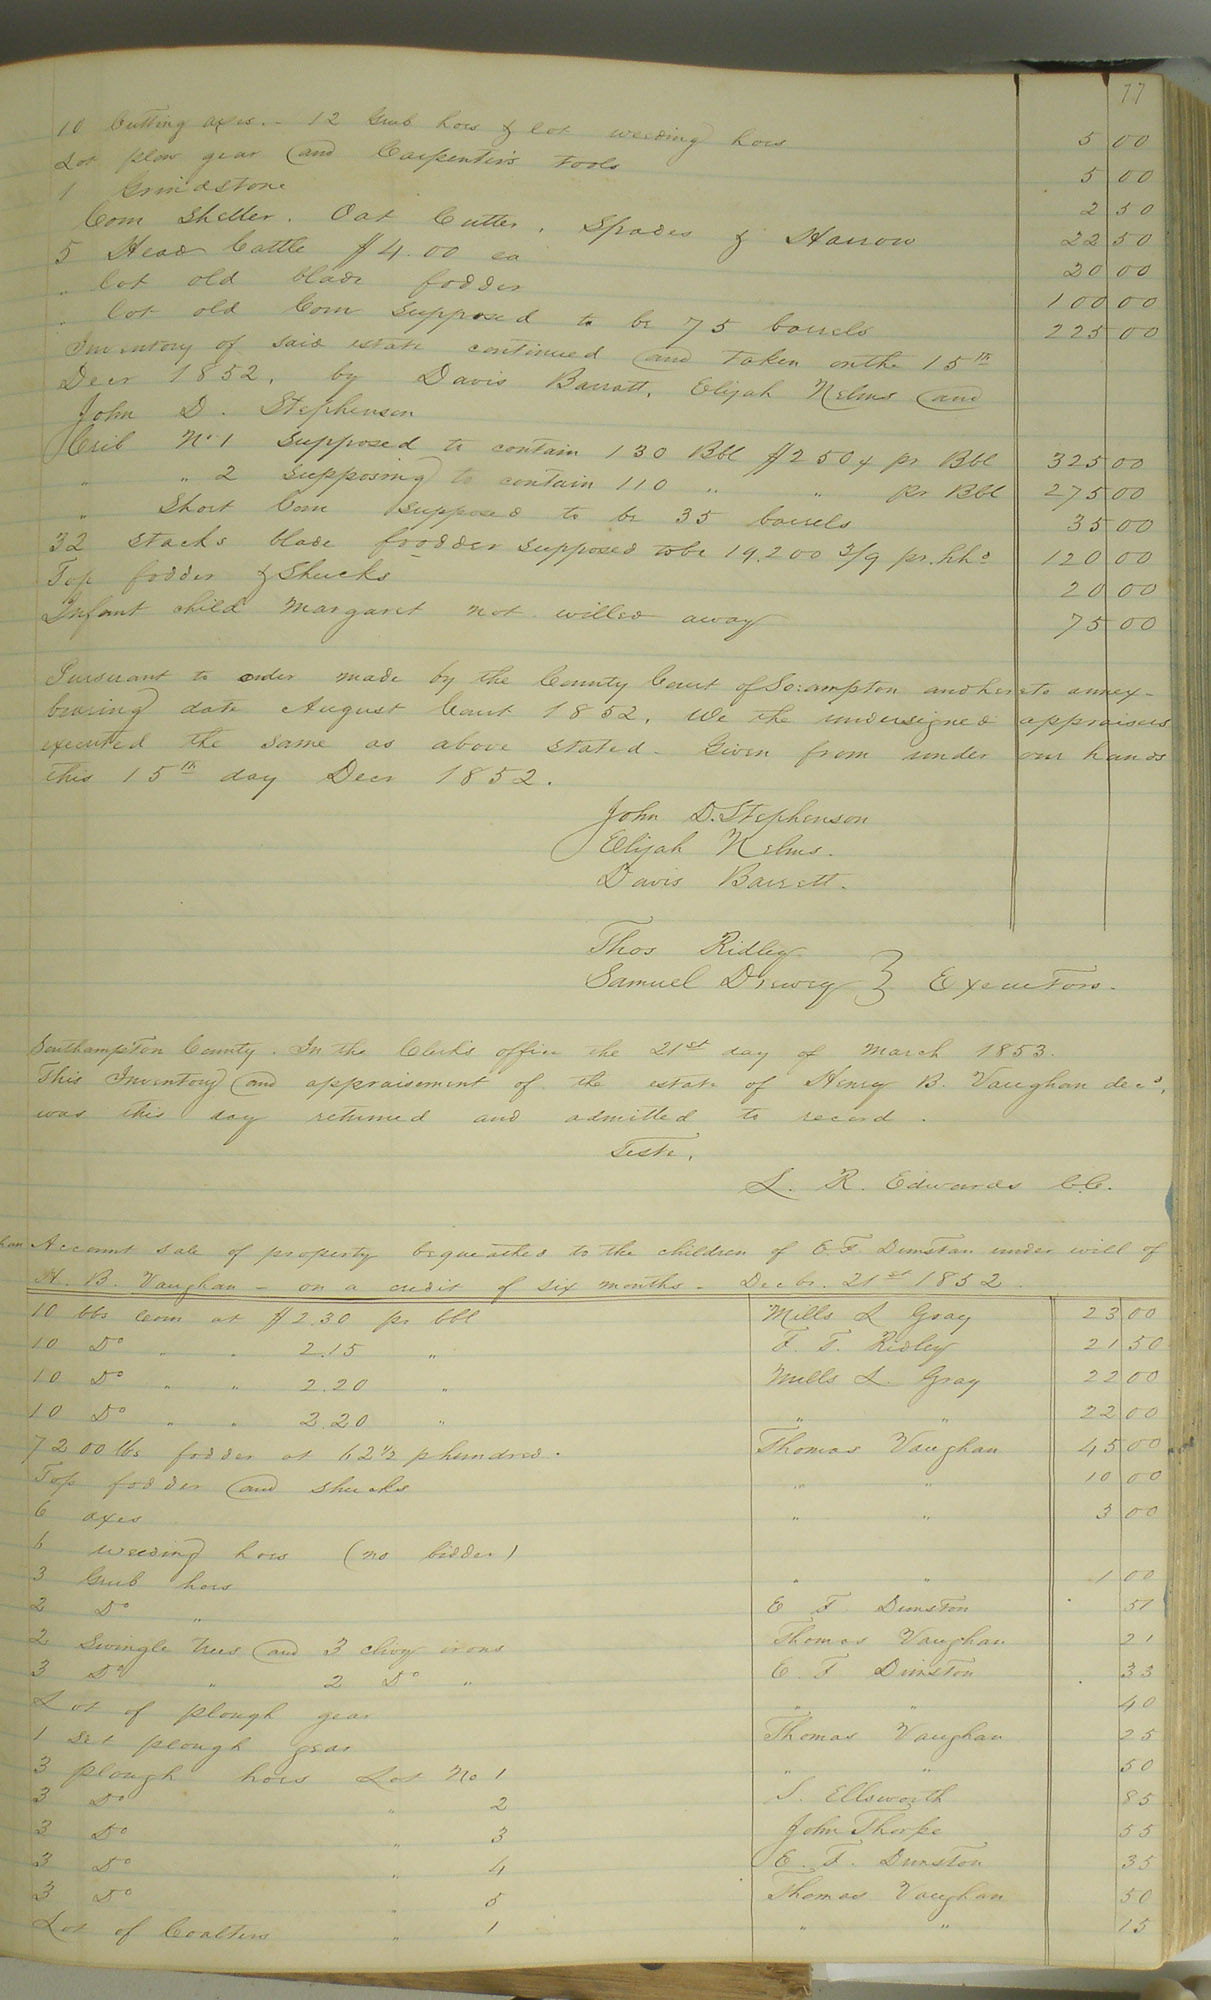 77
10 Cutting axes. - 12 Grub hoes & lot weeding hoes 5 00
Lot plow gear and Carpenters tools 5 00
1 Grindstone 2 50
Corn Sheller. Oat Cutter, Spades & Harrow 22 50
5 Head Cattle $4.00 ea 20 00
" lot old blade fodder 100 00
" lot old Corn supposed to be 75 barrels 225 00
Inventory of said estate continued and taken on the 15th
Decr 1852, by Davis Barratt, Elijah Nelms and
John D. Stephenson
Crib No 1 supposed to contain 130 Bbl $2 50 pr Bbl 325 00
" " 2 supposing to contain 110 " " pr Bbl 275 00
" Short Corn supposed to be 35 barrels 35 00
32 stacks blade frodder supposed to be 19.200 3/9 pr. hhd 120 00
Top fodder & Shucks 20 00
Infant child Margaret not willed away 75 00
Pursuant to order made by the County Court of So:ampton and hereto annex-
bearing date August Court 1852, We the undersigned appraisers
executed the same as above stated. Given from under our hands
this 15th day Decr 1852.
John D. Stephenson
Elijah Nelms.
Davis Barrett.
Thos Ridley
Samuel Drewry } Executors.
Southampton County. In the Clerk's office the 21st day of March 1853.
This Inventory and appraisement of the estate of Henry B. Vaughan decd,
was this day returned and admitted to record.
Teste,
L. R. Edwards C.C.
Account sale of property bequeathed to the children of E. F. Dunstan under will of
H. B. Vaughan - on a credit of six months - Decbr. 21st 1852.
10 bbs Corn at $2.30 pr bbl Mills L Gray 23 00
10 Do " " 2.15 " F. T. Ridley 21 50
10 Do " " 2.20 " Mills L. Gray 22 00
10 Do " " 2.20 " " " 22 00
7200 lbs fodder at 62 1/2 p hundred. Thomas Vaughan 45 00
Top fodder and shucks " " 10 00
6 axes " " 3 00
6 weeding hoes (no bidder)
3 Grub hoes " " 1 00
2 Do " E F. Dunston 51
2 Swingle trees and 3 clevy irons Thomas Vaughan 21
3 Do " 2 Do " E. F. Dunston 33
Lot of plough gear " " 40
1 Set plough gear Thomas Vaughan 25
3 plough hoes Lot No 1 " " 50
3 Do " 2 S. Ellsworth 85
3 Do " 3 John Thorpe 55
3 Do " 4 E. F. Dunston 35
3 Do " 5 Thomas Vaughan 50
Lot of Coalters " 1 " " 15